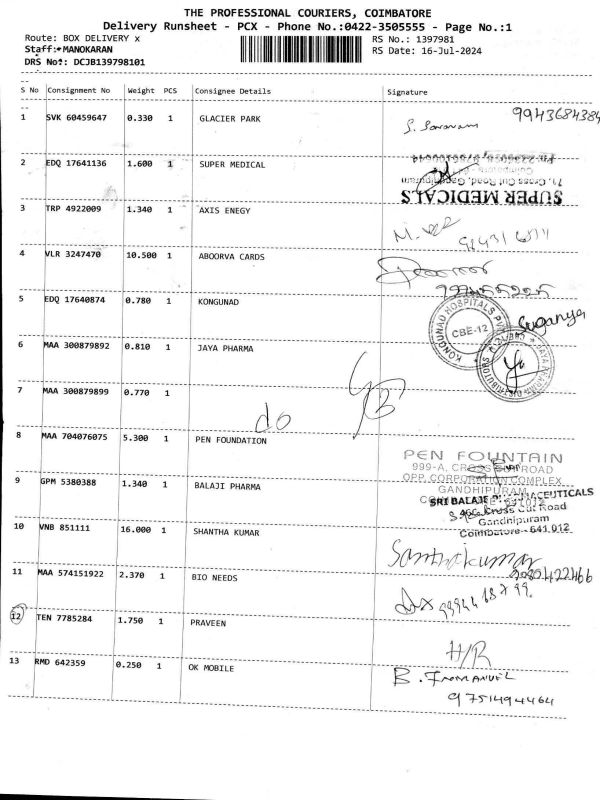 THE PROFESSIONAL COURIERS, COIMBATORE
Delivery Runsheet - PCX - Phone No.:0422-3505555 - Page No.:1
Route: BOX DELIVERY x
RS No.: 1397981
Staff: MANOKARAN
RS Date: 16-Jul-2024
DRS No: DCJB139798101
S No Consignment No Weight PCS Consignee Details Signature
1 SVK 60459647 0.330 1 GLACIER PARK S. Saravanan 9943684384
2 EDQ 17641136 1.600 1 SUPER MEDICAL
71, Cross Cut Road, Gandhipuram
SUPER MEDICALS
3 TRP 4922009 1.340 1 AXIS ENEGY
4 VLR 3247470 10.500 1 ABOORVA CARDS
5 EDQ 17640874 0.780 1 KONGUNAD
KONGUNAD HOSPITALS CBE-12 Suganya
6 MAA 300879892 0.810 1 JAYA PHARMA
7 MAA 300879899 0.770 1
do
8 MAA 704076075 5.300 1 PEN FOUNDATION
PEN FOUNTAIN
999-A, CROSS CUT ROAD
OPP. CORPORATION COMPLEX
GANDHIPURAM
9 GPM 5380388 1.340 1 BALAJI PHARMA
SRI BALAJI PHARMACEUTICALS
Cross Cut Road
Gandhipuram
Coimbatore - 641 012
10 VNB 851111 16.000 1 SHANTHA KUMAR
Santhakumar
11 MAA 574151922 2.370 1 BIO NEEDS
12 TEN 7785284 1.750 1 PRAVEEN
H/R
13 RMD 642359 0.250 1 OK MOBILE
B. Immanuel
9751494464